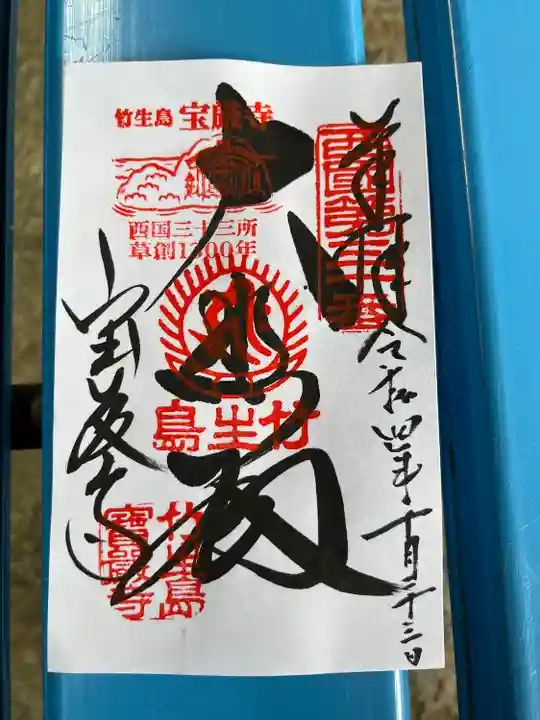 奉拝
令和四年十月二十三日
西國第三十番
竹生島 宝厳寺
西国三十三所
草創1300年
大悲殿
竹生島
宝厳寺
竹生島
寶嚴寺